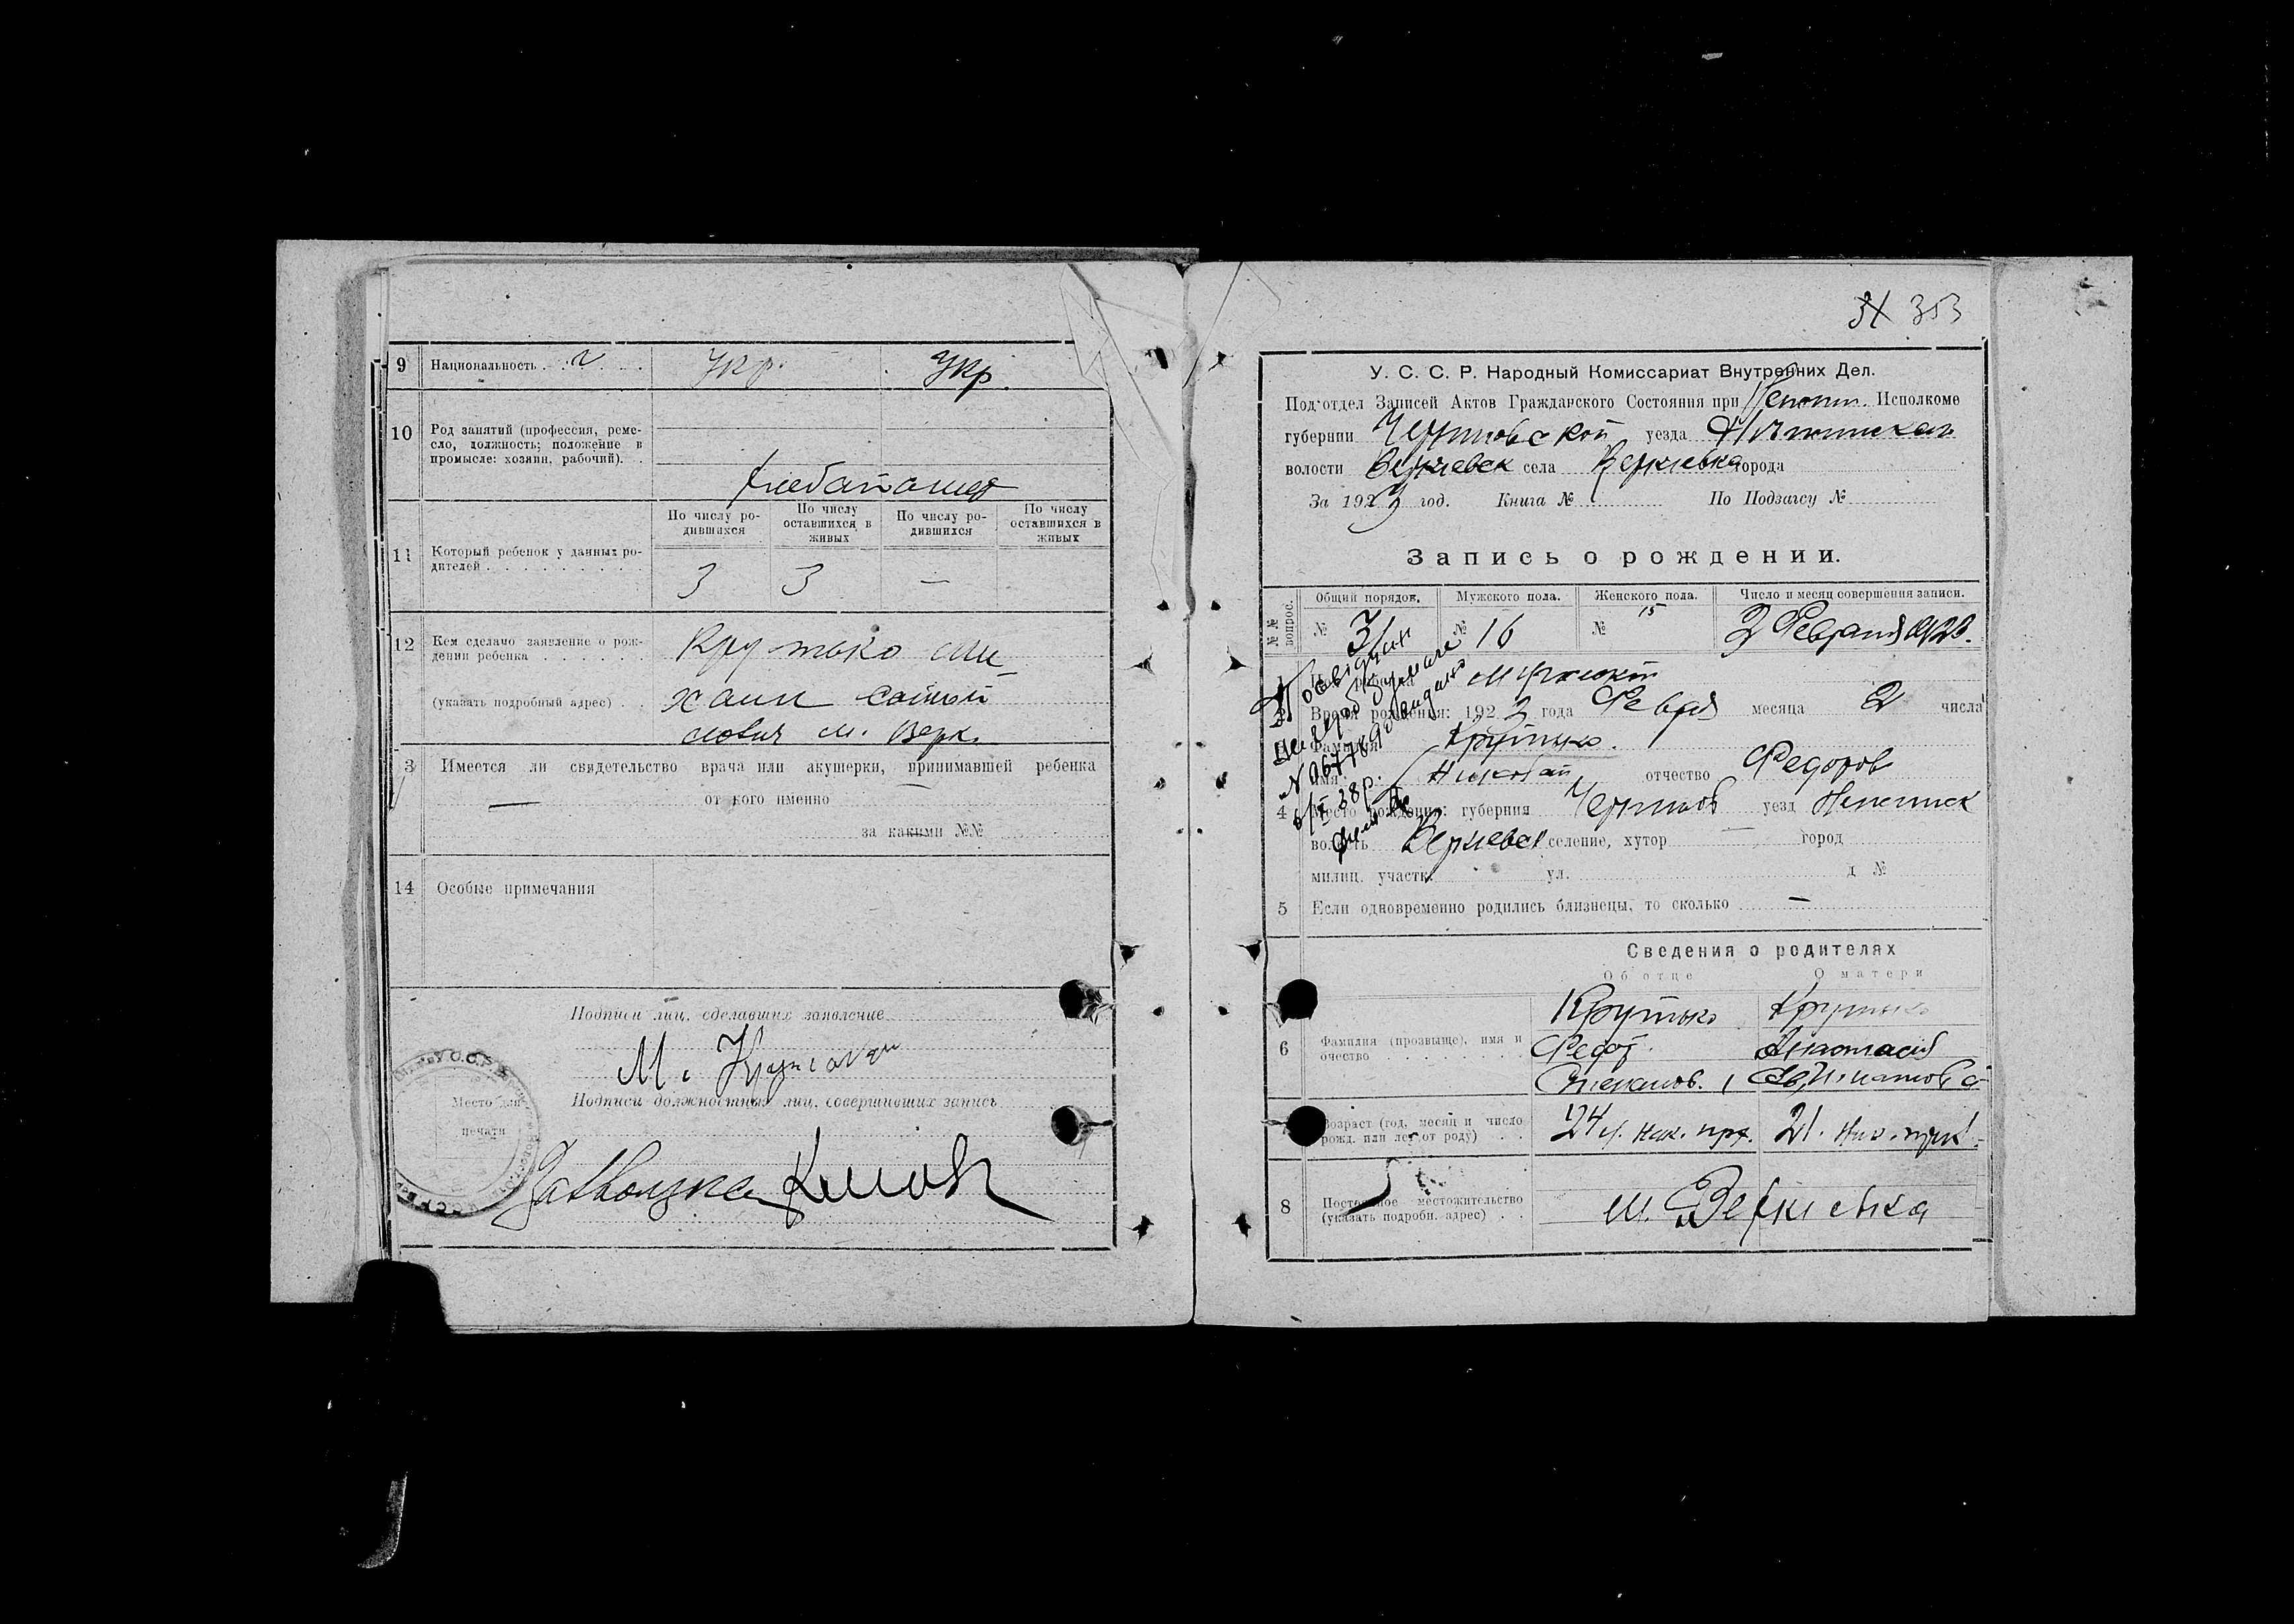 9 Национальность . . . . Укр. Укр.
10 Род занятий (профессия, реме-
сло, должность; положение в
промысле: хозяин, рабочий). .
По числу ро-
дившихся
По числу
оставшихся в
живых
По числу ро-
дившихся
По числу
оставшихся в
живых
11 Который ребенок у данных ро-
дителей . . . . . . . . .
3 3 —
12 Кем сделано заявление о рож-
дении ребенка . . . . . .
Крутько Ми-
(указать подробный адрес) . . хаил
м. Верк.
3 Имеется ли свидетельство врача или акушерки, принимавшей ребенка
— от кого именно
за какими №№
14 Особые примечания
Подписи лиц, сделавших заявление
М.
Подписи должностных лиц, совершивших запись
Место для
печати
31 353
У. С. С. Р. Народный Комиссариат Внутренних Дел.
Под'отдел Записей Актов Гражданского Состояния при Исполкоме
губернии Черниговской уезда Нежинская
волости Веркиевск села Веркиевка города
За 1923 год. Книга № По Подзагсу №
Запись о рождении.
№№ вопрос.
Общий порядок. Мужского пола. Женского пола. Число и месяц совершения записи.
№ 31 № 16 № 15 3 Февраля 1923.
Мужской
2 Время рождения: 1923 года Февраля месяца 2 числа
Фамилия Крутько.
имя: Николай отчество Федоров
4 Место рождения: губерния Чернигов уезд Нежинск
волость Веркиевск селение, хутор — город
милиц. участк. ул. д №
5 Если одновременно родились близнецы, то сколько —
Сведения о родителях
Об отце О матери
6 Фамилия (прозвище), имя и
очество . . . . . . . .
Крутько Крутько
Федор Анастасия
Степанов.
Возраст (год, месяц и число
рожд. или лет от роду) . .
24 21.
8 Постоянное местожительство
(указать подробн. адрес) . .
м. Веркиевка